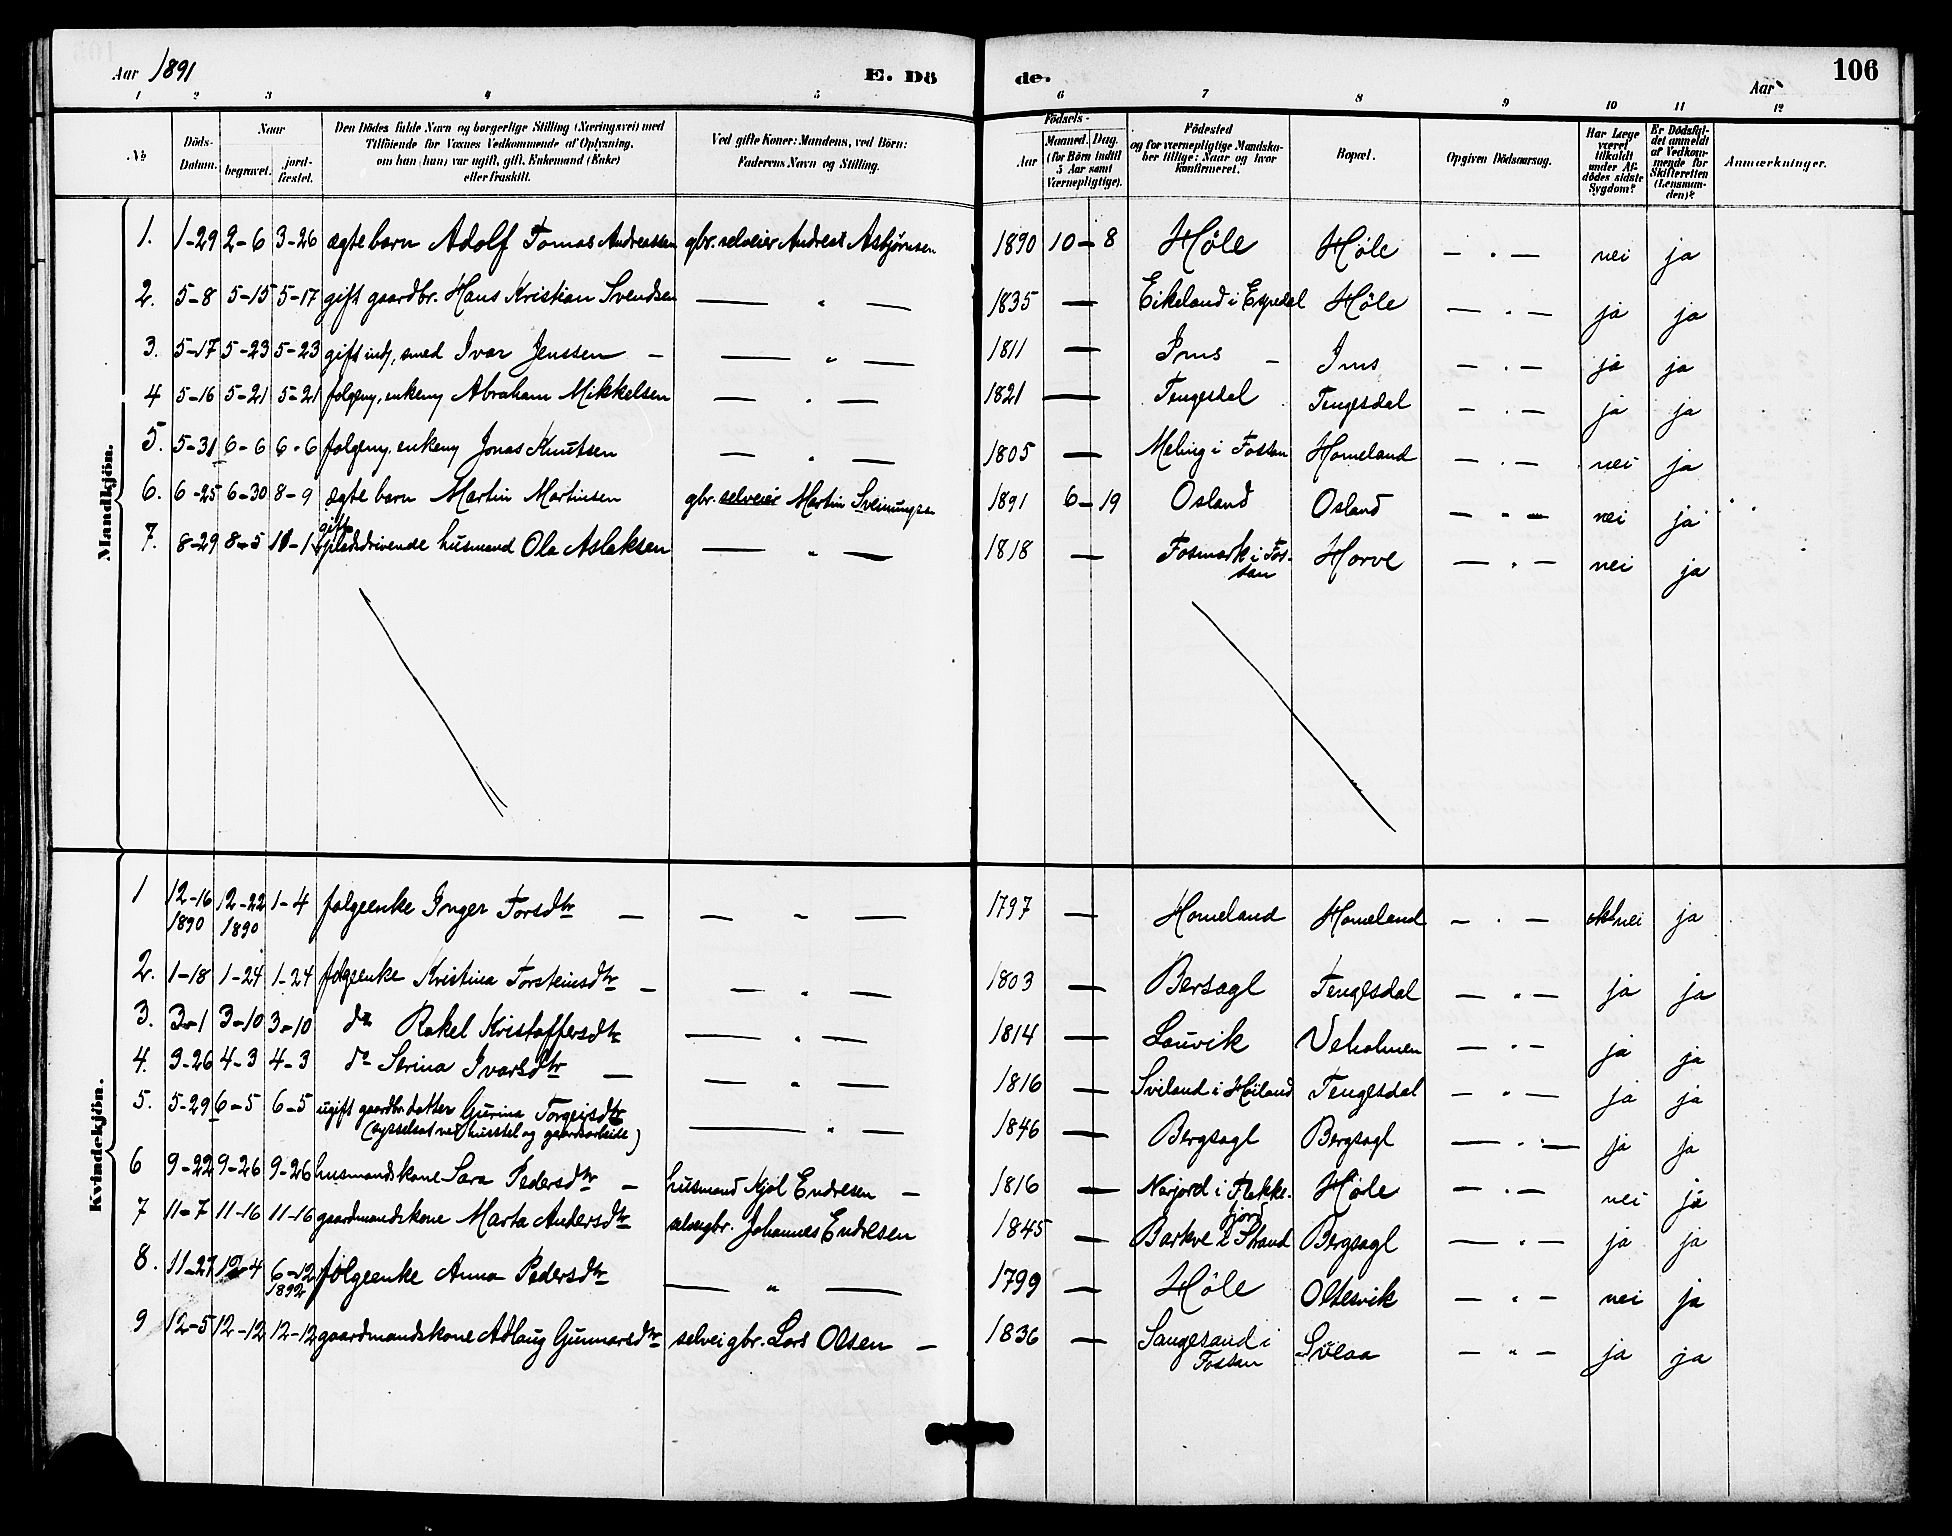 Aar 1891 E. Dö de. Aar 106
1 2 3 4 5 6 7 8 9 10 11 12
No
Döds-Datum.
Naar begravet. jord-fæstet.
Den Dödes fulde Navn og borgerlige Stilling (Næringsvei) med
Tilföiende for Voxnes Vedkommende af Oplysning,
om han (hun) var ugift, gift, Enkemand (Enke)
eller fraskilt.
Ved gifte Koner: Mandens, ved Börn:
Faderens Navn og Stilling.
Födsels-
Aar Maaned. Dag.
(for Börn indtil
5 Aar samt
Værnepligtige).
Födested
og for værnepligtige Mandska-
ber tillige: Naar og hvor
konfirmeret.
Bopæl.
Opgiven Dödsaarsag.
Har Læge
været
tilkaldt
under Af-
dödes sidste
Sygdom?
Er Dödsfal-
det anmeldt
af Vedkom-
mende for
Skifteretten
(Lensman-
den)?
Anmærkninger.
Mandkjön.
1. 1-29 2-6 3-26 ægte barn Adolf Tomas Andreassen gbr. selveier Andreas Asbjørnsen 1890 10-8 Høle Høle — " — nei ja
2. 5-8 5-15 5-17 gift gaardbr. Hans Kristian Svendsen — " — 1835 — Eikeland i Espedal Høle — " — ja ja
3. 5-17 5-23 5-23 gift inds. smed Ivar Jenssen — — " — 1811 — Ims — Ims — " — ja ja
4 5-16 5-21 5-21 folgem, enkem Abraham Mikkelsen — " — 1821 — Tengesdal Tengesdal — " — ja ja
5. 5-31 6-6 6-6 folgem, enkem Jonas Knutsen — " — 1805 — Meling i Fossan Homeland — " — nei ja
6. 6-25 6-30 8-9 ægte barn Martin Martinsen gbr. selveier Martin Sveinungss. 1891 6-19 Osland Osland — " — nei ja
gift
7. 8-29 8-5 10-1 pladsdrivende husmand Ola Aslaksen — " — 1818 — Fosmark i Fos-
san Horve — " — nei ja
Kvindekjön.
1 12-16 12-22 1-4 folgeenke Inger Torsdtr — — " — 1797 — Homeland Homeland — " — nei ja
1890 1890
2. 1-18 1-24 1-24 folgeenke Kristina Torsteinsdtr — — " — 1803 — Bersagl Tengesdal — " — ja ja
3. 3-1 3-10 3-10 do Rakel Kristoffersdtr — " — 1814 — Lauvik Veholmen — " — ja ja
4. 3-26 4-3 4-3 do Serina Ivarsdtr — — " — 1816 — Sviland i Høiland Tengesdal — " — ja ja
5. 5-29 6-5 6-5 ugift gaardbr. datter Gurina Torgeirsdtr — " — 1846 — Bergsagl Bergsagl — " — ja ja
(sysselsat ved husstel og gaardsarbeide)
6 9-22 9-26 9-26 husmandskone Sara Pedersdtr — husmand Kjøl Endresen — 1816 — Narjord i Flekke-
fjord Høle — " — nei ja
7 11-7 11-16 11-16 gaardmandskone Marta Andersdtr selvgbr. Johannes Endresen 1845 — Barkve i Strand Bergsagl — " — ja ja
8. 11-27 12-4 6-12 følgeenke Anna Pedersdtr — " — 1799 — Høle Oltesvik — " — nei ja
1892
9 12-5 12-12 12-12 gaardmandskone Adlaug Gunnarsdtr selvei gbr. Lars Olsen — 1836 — Saugesand i
Fossan Svеaa — " — ja ja